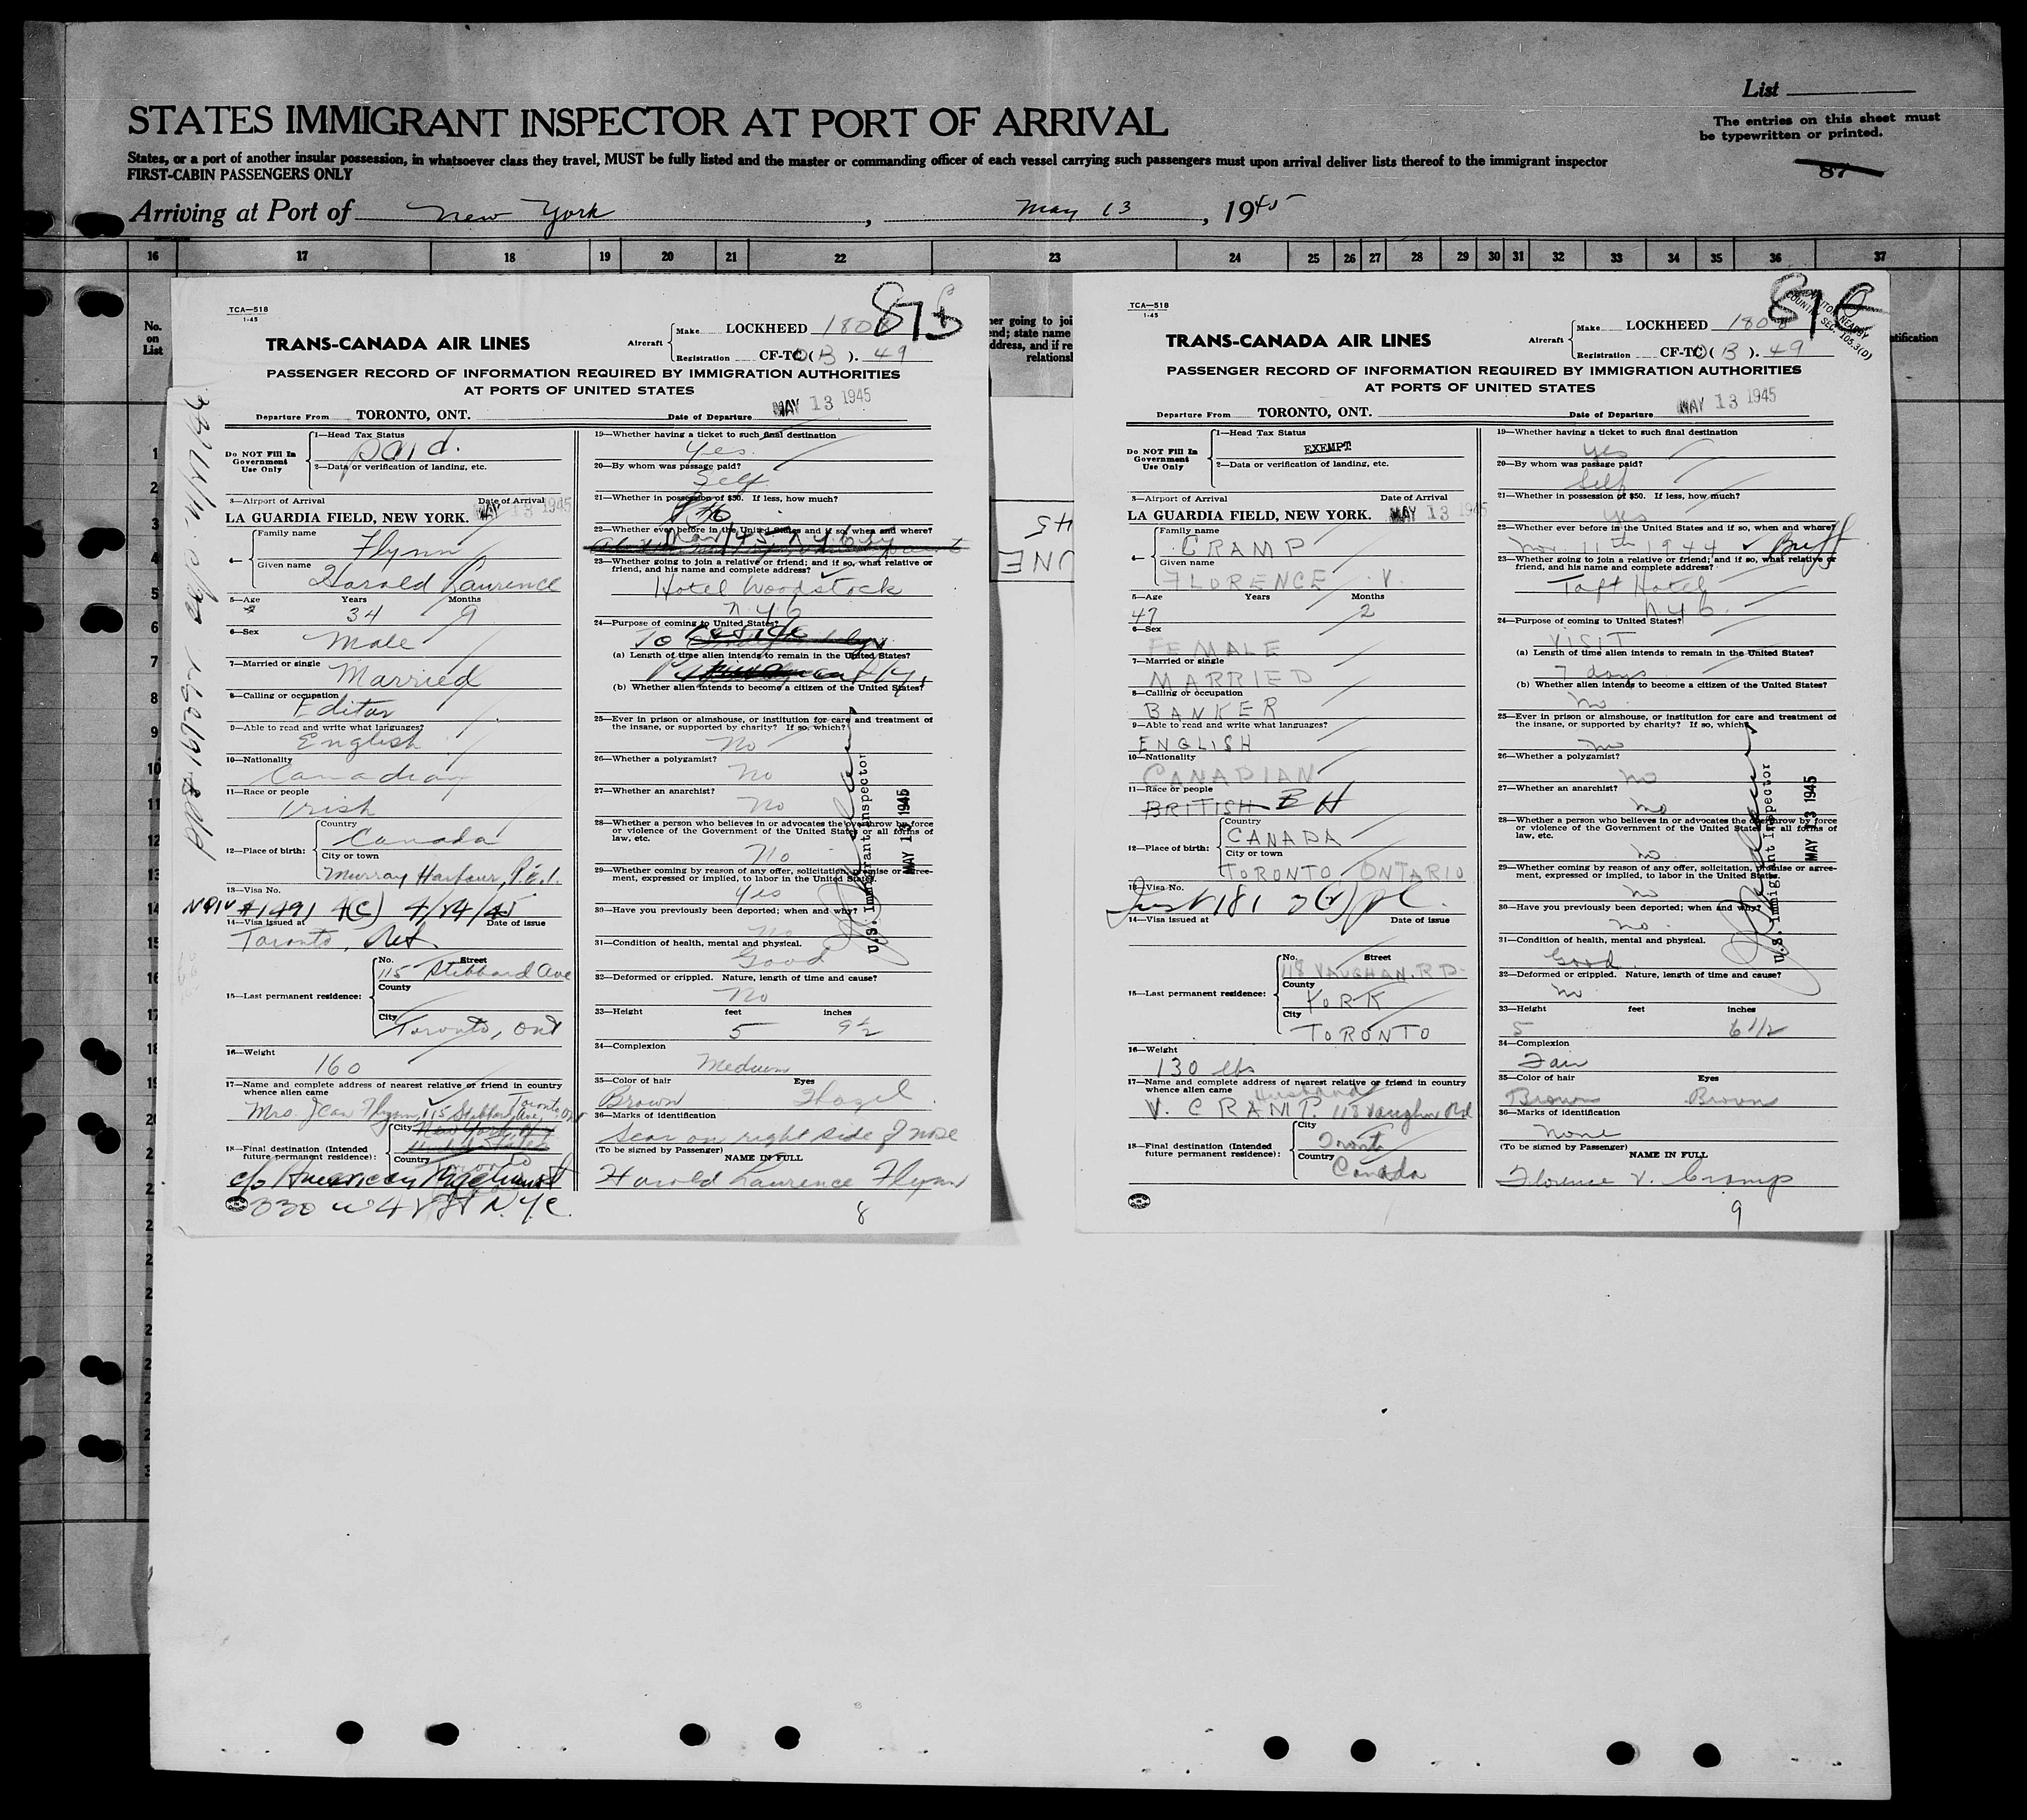 List
STATES IMMIGRANT INSPECTOR AT PORT OF ARRIVAL
The entries on this sheet must
be typewritten or printed.
States, or a port of another insular possession, in whatsoever class they travel, MUST be fully listed and the master or commanding officer of each vessel carrying such passengers must upon arrival deliver lists thereof to the immigrant inspector
FIRST-CABIN PASSENGERS ONLY
87
Arriving at Port of New York, May 13, 1945
16 17 18 19 20 21 22 23 24 25 26 27 28 29 30 31 32 33 34 35 36 37
No.
on
List
TCA—518
1-45
87B
TRANS-CANADA AIR LINES
Aircraft
Make LOCKHEED 1808
Registration CF-TC( B ). 49
PASSENGER RECORD OF INFORMATION REQUIRED BY IMMIGRATION AUTHORITIES
AT PORTS OF UNITED STATES
Departure From TORONTO, ONT.
Date of Departure MAY 13 1945
Do NOT Fill In
Government
Use Only
1—Head Tax Status
paid.
2—Data or verification of landing, etc.
3—Airport of Arrival Date of Arrival
LA GUARDIA FIELD, NEW YORK. MAY 13 1945
4—
Family name
Flynn
Given name
Harold Laurence
5—Age Years Months
34 9
6—Sex
Male
7—Married or single
Married
8—Calling or occupation
Editor
9—Able to read and write what languages?
English
10—Nationality
Canadian
11—Race or people
Irish
12—Place of birth:
Country
Canada
City or town
Murray Harbour, P.E.I.
13—Visa No.
#1491 4(C) 4/24/45
14—Visa issued at Date of issue
Toronto, Ont.
15—Last permanent residence:
No. Street
115 Stibbard Ave
County
City
Toronto, Ont
16—Weight
160
17—Name and complete address of nearest relative or friend in country
whence alien came
Mrs. Jean Flynn, 115 Stibbard Ave, Toronto, Ont
18—Final destination (Intended
future permanent residence):
City
Country
c/o American
330 W 42 St N.Y.C.
19—Whether having a ticket to such final destination
Yes
20—By whom was passage paid?
Self
21—Whether in possession of $50. If less, how much?
22—Whether ever before in the United States and if so, when and where?
23—Whether going to join a relative or friend; and if so, what relative or
friend, and his name and complete address?
Hotel Woodstock
N.Y.C
24—Purpose of coming to United States?
To reside
(a) Length of time alien intends to remain in the United States?
(b) Whether alien intends to become a citizen of the United States?
25—Ever in prison or almshouse, or institution for care and treatment of
the insane, or supported by charity? If so, which?
No
26—Whether a polygamist?
No
27—Whether an anarchist?
No
28—Whether a person who believes in or advocates the overthrow by force
or violence of the Government of the United States or all forms of
law, etc.
No
29—Whether coming by reason of any offer, solicitation, promise or agree-
ment, expressed or implied, to labor in the United States.
Yes
30—Have you previously been deported; when and why?
No
31—Condition of health, mental and physical.
Good
32—Deformed or crippled. Nature, length of time and cause?
No
33—Height feet inches
5 9½
34—Complexion
Medium
35—Color of hair Eyes
Brown Hazel
36—Marks of identification
Scar on right side of nose
(To be signed by Passenger)
NAME IN FULL
Harold Laurence Flynn
8
U.S. Immigrant Inspector
MAY 13 1945
TCA—518
1-45
87C
TRANS-CANADA AIR LINES
Aircraft
Make LOCKHEED 1808
Registration CF-TC( B ). 49
PASSENGER RECORD OF INFORMATION REQUIRED BY IMMIGRATION AUTHORITIES
AT PORTS OF UNITED STATES
Departure From TORONTO, ONT.
Date of Departure MAY 13 1945
Do NOT Fill In
Government
Use Only
1—Head Tax Status
EXEMPT
2—Data or verification of landing, etc.
3—Airport of Arrival Date of Arrival
LA GUARDIA FIELD, NEW YORK. MAY 13 1945
4—
Family name
CRAMP
Given name
FLORENCE V.
5—Age Years Months
47 2
6—Sex
FEMALE
7—Married or single
MARRIED
8—Calling or occupation
BANKER
9—Able to read and write what languages?
ENGLISH
10—Nationality
CANADIAN
11—Race or people
BRITISH
12—Place of birth:
Country
CANADA
City or town
TORONTO, ONTARIO
13—Visa No.
14—Visa issued at Date of issue
15—Last permanent residence:
No. Street
118 VAUGHAN. RD.
County
YORK
City
TORONTO
16—Weight
130 lbs
17—Name and complete address of nearest relative or friend in country
whence alien came
Husband
V. CRAMP. 118 Vaughn Rd
18—Final destination (Intended
future permanent residence):
City
Toronto
Country
Canada
19—Whether having a ticket to such final destination
Yes
20—By whom was passage paid?
Self
21—Whether in possession of $50. If less, how much?
Yes
22—Whether ever before in the United States and if so, when and where?
Nov. 11th 1944 Buff
23—Whether going to join a relative or friend; and if so, what relative or
friend, and his name and complete address?
Taft Hotel
N.Y.C.
24—Purpose of coming to United States?
VISIT
(a) Length of time alien intends to remain in the United States?
7 days
(b) Whether alien intends to become a citizen of the United States?
No
25—Ever in prison or almshouse, or institution for care and treatment of
the insane, or supported by charity? If so, which?
no
26—Whether a polygamist?
no
27—Whether an anarchist?
no
28—Whether a person who believes in or advocates the overthrow by force
or violence of the Government of the United States or all forms of
law, etc.
no
29—Whether coming by reason of any offer, solicitation, promise or agree-
ment, expressed or implied, to labor in the United States.
no
30—Have you previously been deported; when and why?
no
31—Condition of health, mental and physical.
Good
32—Deformed or crippled. Nature, length of time and cause?
no
33—Height feet inches
5 6 1/2
34—Complexion
Fair
35—Color of hair Eyes
Brown Brown
36—Marks of identification
none
(To be signed by Passenger)
NAME IN FULL
Florence V. Cramp
9
U.S. Immigrant Inspector
MAY 13 1945